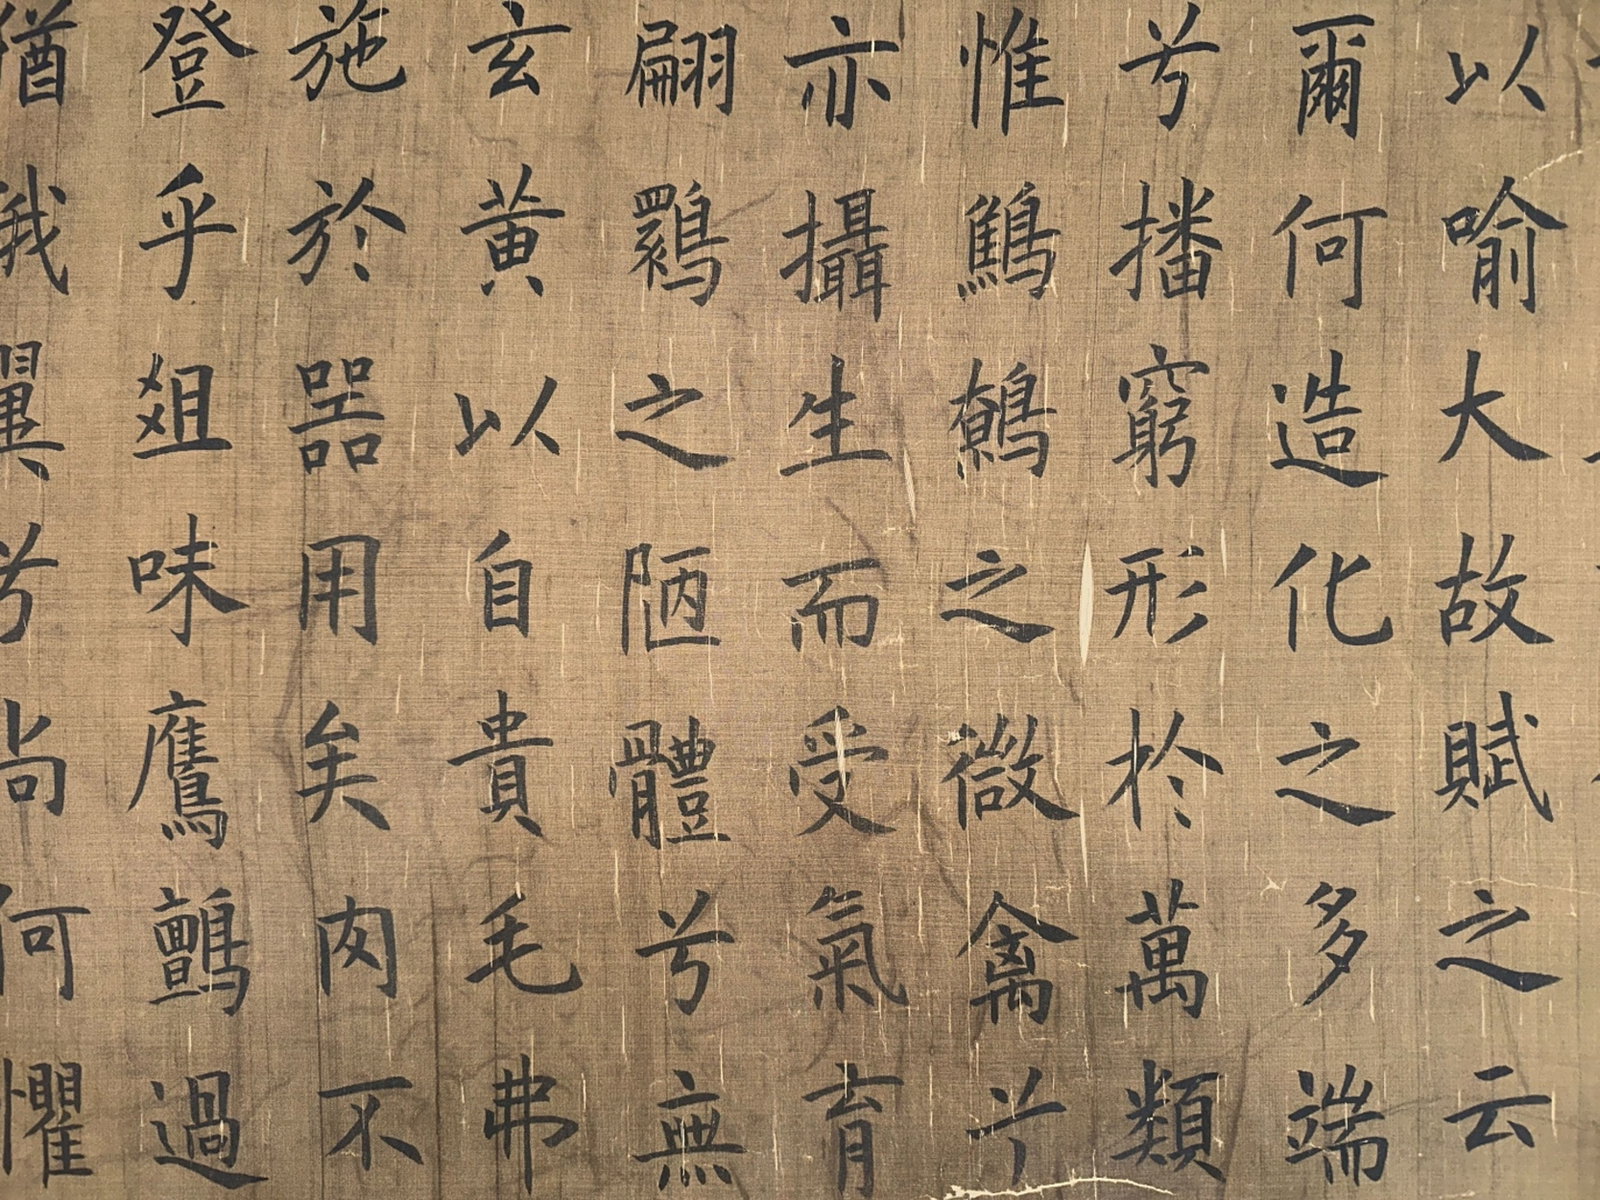 以喻大故賦之云
爾何造化之多端
兮播窮形於萬類
惟鷦鷯之微禽兮
亦攝生而受氣育
翩翾之陋體兮無
玄黃以自貴毛弗
施於器用矣肉不
登乎俎味鷹鸇過
猶我翼兮尚何懼